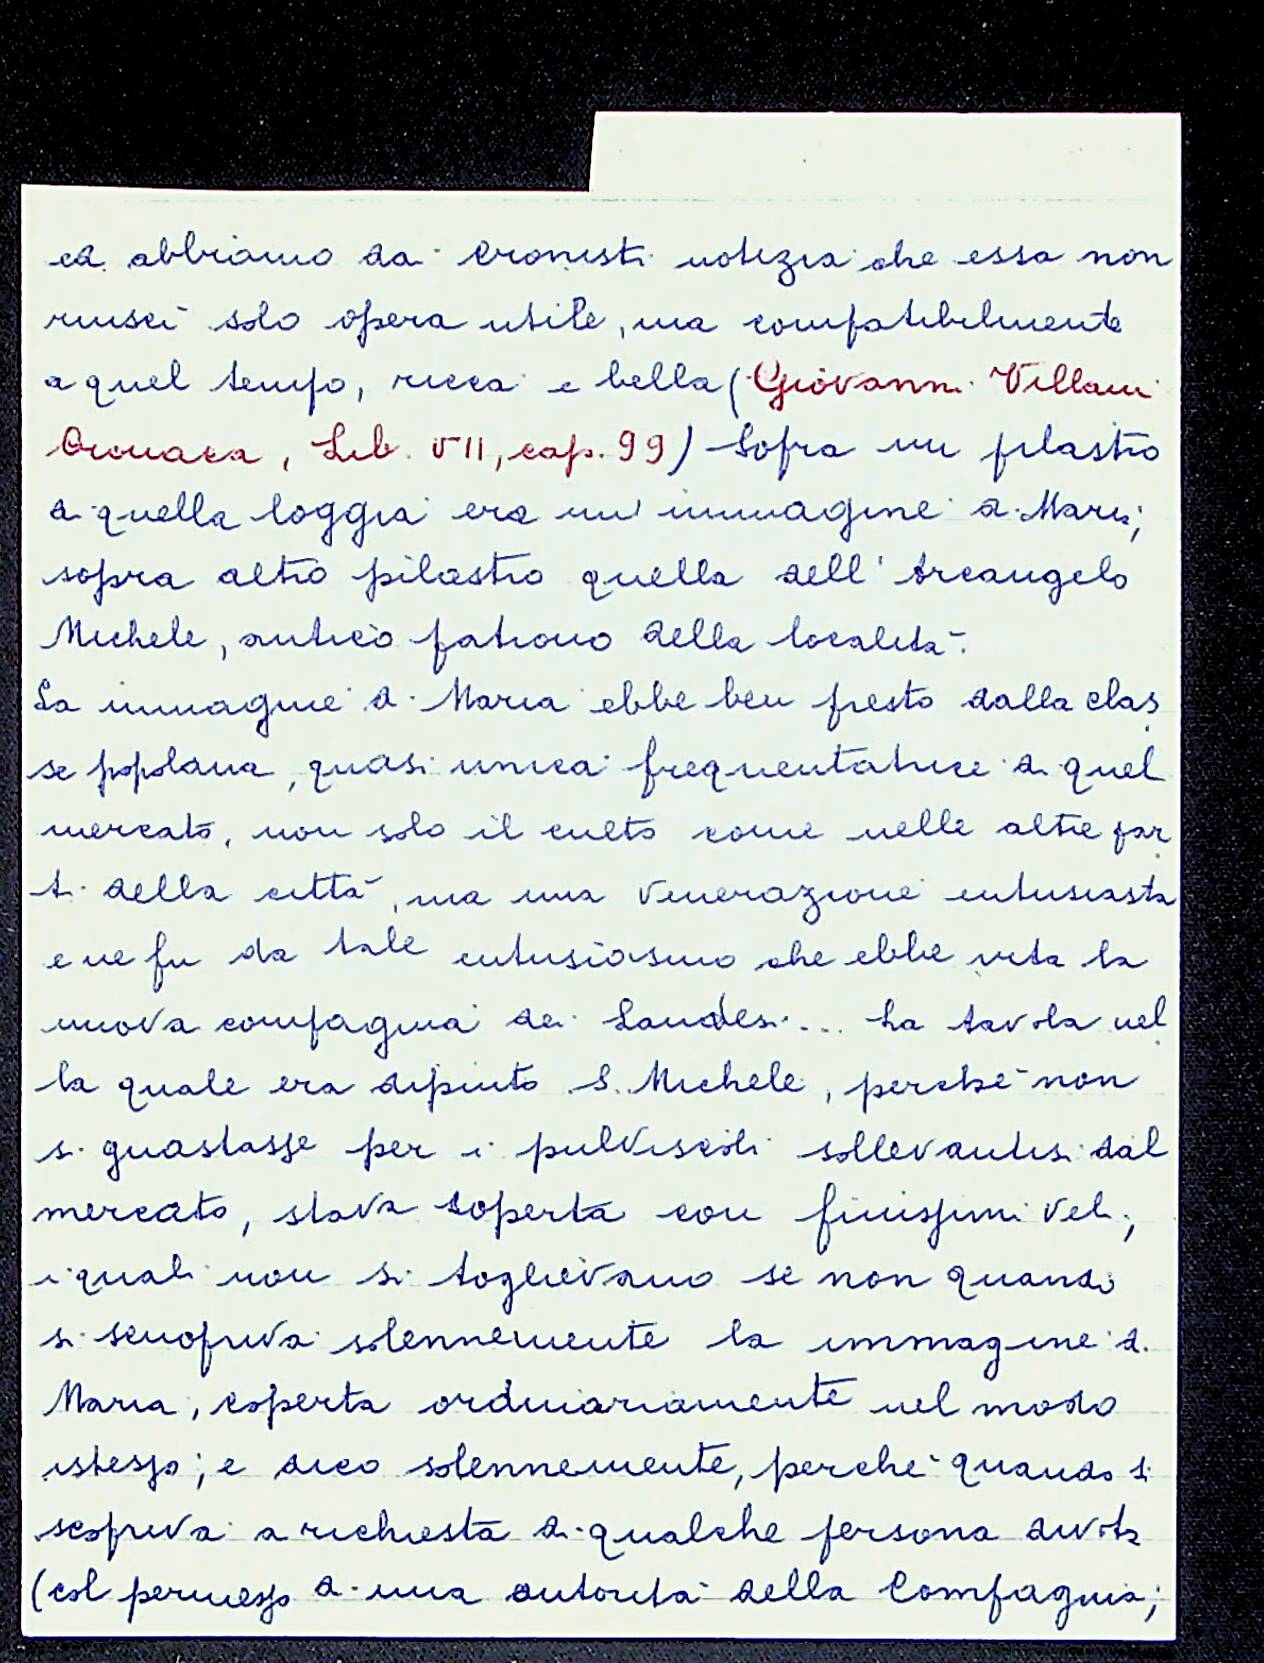 ed abbiamo dai Cronisti notizia che essa non
riuscì solo opera utile, ma compatibilmente
a quel tempo, ricca e bella (Giovanni Villani
Cronaca, Lib. VII, cap. 99) Sopra un pilastro
di quella loggia era un' immagine di Maria;
sopra altro pilastro quella dell' Arcangelo
Michele, antico patrono della località.
La immagine di Maria ebbe ben presto dalla clas
se popolana, quasi unica frequentatrice di quel
mercato, non solo il culto come nelle altre par
ti della città, ma una venerazione entusiasta
e ne fu da tale entusiasmo che ebbe vita la
nuova compagnia dei Laudesi... La tavola nel
la quale era dipinto S. Michele, perchè non
si guastasse per i pulviscoli sollevantisi dal
mercato, stava coperta con finissimi veli,
i quali non si toglievano se non quando
si scuopriva solennemente la immagine di
Maria, coperta ordinariamente nel modo
istesso; e dico solennemente, perchè quando si
scopriva a richiesta di qualche persona divota
(col permesso di una autorità della Compagnia;